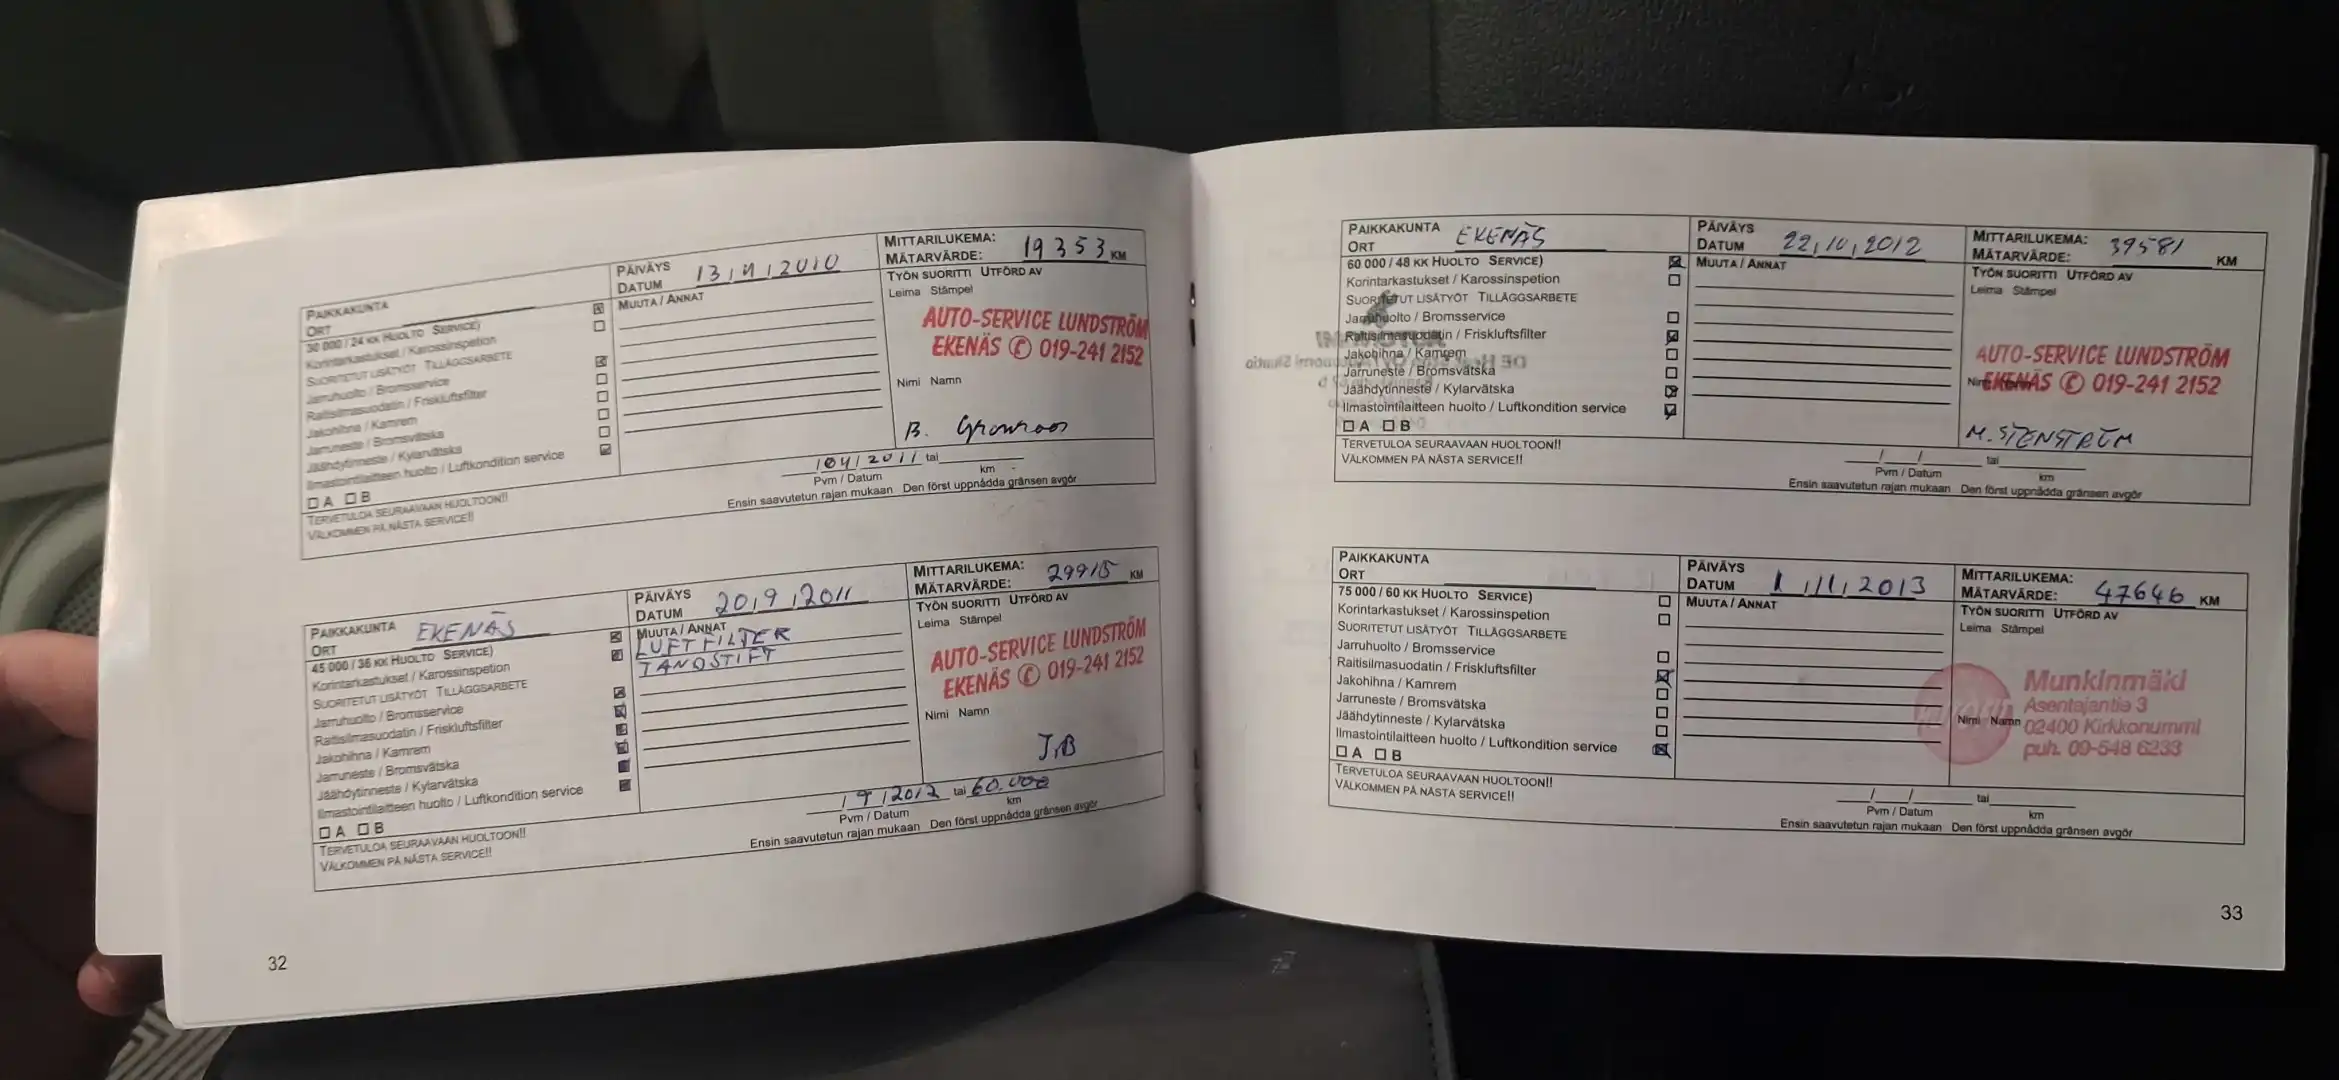 PAIKKAKUNTA
ORT
PÄIVÄYS
DATUM 13,4,2010
MITTARILUKEMA:
MÄTARVÄRDE: 19353 KM
30 000 / 24 KK HUOLTO SERVICE)
Korintarkastukset / Karossinspetion
SUORITETUT LISÄTYÖT TILLÄGGSARBETE
Jarruhuolto / Bromsservice
Raitisilmasuodatin / Friskluftsfilter
Jakohihna / Kamrem
Jarruneste / Bromsvätska
Jäähdytinneste / Kylarvätska
Ilmastointilaitteen huolto / Luftkondition service
A B
MUUTA / ANNAT
TYÖN SUORITTI UTFÖRD AV
Leima Stämpel
AUTO-SERVICE LUNDSTRÖM
EKENÄS ✆ 019-241 2152
Nimi Namn
B.
TERVETULOA SEURAAVAAN HUOLTOON!!
VÄLKOMMEN PÅ NÄSTA SERVICE!!
/04/2011 tai
Pvm / Datum km
Ensin saavutetun rajan mukaan Den först uppnådda gränsen avgör
PAIKKAKUNTA EKENÄS
ORT
PÄIVÄYS
DATUM 20,9,2011
MITTARILUKEMA:
MÄTARVÄRDE: 29915 KM
45 000 / 36 KK HUOLTO SERVICE)
Korintarkastukset / Karossinspetion
SUORITETUT LISÄTYÖT TILLÄGGSARBETE
Jarruhuolto / Bromsservice
Raitisilmasuodatin / Friskluftsfilter
Jakohihna / Kamrem
Jarruneste / Bromsvätska
Jäähdytinneste / Kylarvätska
Ilmastointilaitteen huolto / Luftkondition service
A B
MUUTA / ANNAT
LUFTFILTER
TÄNDSTIFT
TYÖN SUORITTI UTFÖRD AV
Leima Stämpel
AUTO-SERVICE LUNDSTRÖM
EKENÄS ✆ 019-241 2152
Nimi Namn
J.B
TERVETULOA SEURAAVAAN HUOLTOON!!
VÄLKOMMEN PÅ NÄSTA SERVICE!!
/9/2012 tai 60.000
Pvm / Datum km
Ensin saavutetun rajan mukaan Den först uppnådda gränsen avgör
32
PAIKKAKUNTA EKENÄS
ORT
PÄIVÄYS
DATUM 22,10,2012
MITTARILUKEMA: 39581
MÄTARVÄRDE: KM
60 000 / 48 KK HUOLTO SERVICE)
Korintarkastukset / Karossinspetion
SUORITETUT LISÄTYÖT TILLÄGGSARBETE
Jarruhuolto / Bromsservice
Raitisilmasuodatin / Friskluftsfilter
Jakohihna / Kamrem
Jarruneste / Bromsvätska
Jäähdytinneste / Kylarvätska
Ilmastointilaitteen huolto / Luftkondition service
A B
MUUTA / ANNAT
TYÖN SUORITTI UTFÖRD AV
Leima Stämpel
AUTO-SERVICE LUNDSTRÖM
EKENÄS ✆ 019-241 2152
M. STENSTRÖM
TERVETULOA SEURAAVAAN HUOLTOON!!
VÄLKOMMEN PÅ NÄSTA SERVICE!!
/ / tai
Pvm / Datum km
Ensin saavutetun rajan mukaan Den först uppnådda gränsen avgör
PAIKKAKUNTA
ORT
PÄIVÄYS
DATUM 1/11/2013
MITTARILUKEMA:
MÄTARVÄRDE: 47646 KM
75 000 / 60 KK HUOLTO SERVICE)
Korintarkastukset / Karossinspetion
SUORITETUT LISÄTYÖT TILLÄGGSARBETE
Jarruhuolto / Bromsservice
Raitisilmasuodatin / Friskluftsfilter
Jakohihna / Kamrem
Jarruneste / Bromsvätska
Jäähdytinneste / Kylarvätska
Ilmastointilaitteen huolto / Luftkondition service
A B
MUUTA / ANNAT
TYÖN SUORITTI UTFÖRD AV
Leima Stämpel
Munkinmäki
Asentajantie 3
Nimi Namn 02400 Kirkkonummi
puh. 09-548 6233
TERVETULOA SEURAAVAAN HUOLTOON!!
VÄLKOMMEN PÅ NÄSTA SERVICE!!
/ / tai
Pvm / Datum km
Ensin saavutetun rajan mukaan Den först uppnådda gränsen avgör
33